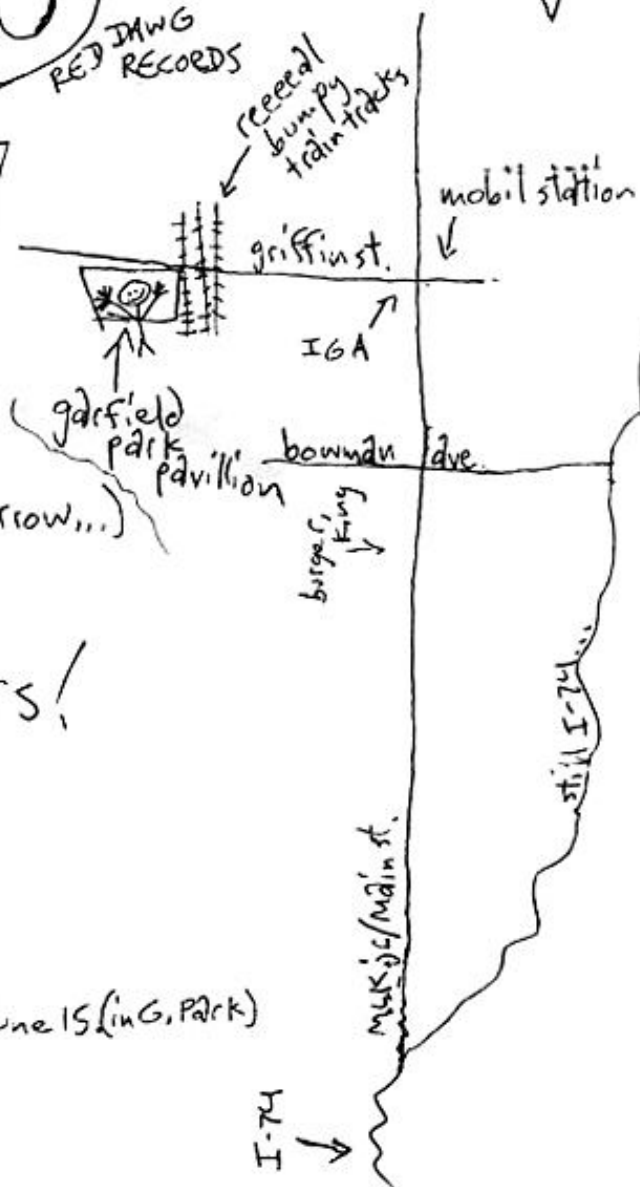 RED DAWG
RECORDS
reeeeal
bumpy
train tracks
mobil station
griffin st.
IGA
garfield
park
pavillion
bowman ave.
rrow,,,)
burger
king
s!
still I-74...
une 15 (in G. Park)
I-74